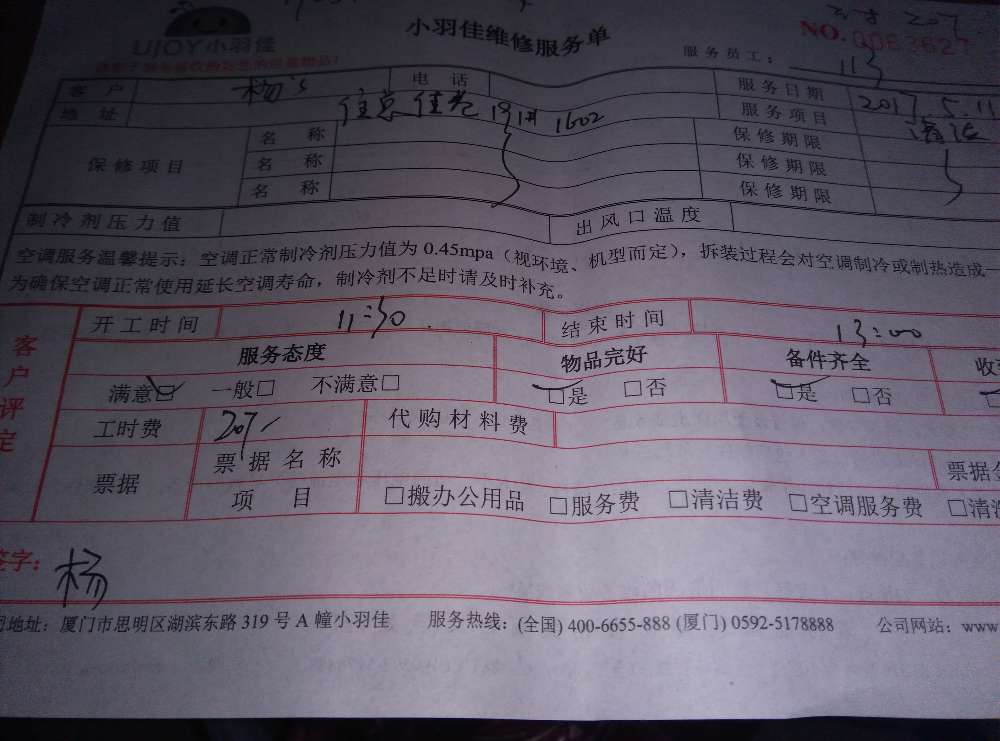 UJOY小羽佳
小羽佳维修服务单
NO. 0083627
服务员工: 113
客户 杨's 电话 服务日期 2017.5.11
地址 住总佳苑19#1602 服务项目 清洗
保修项目 名称 保修期限
名称 保修期限
名称 保修期限
制冷剂压力值 出风口温度
空调服务温馨提示：空调正常制冷剂压力值为 0.45mpa（视环境、机型而定），拆装过程会对空调制冷或制热造成一
为确保空调正常使用延长空调寿命，制冷剂不足时请及时补充。
客户评定
开工时间 11:30 结束时间 13:00
服务态度 物品完好 备件齐全 收
满意□ 一般□ 不满意□ □是 □否 □是 □否
工时费 207 代购材料费
票据 票据名称 票据金
项目 □搬办公用品 □服务费 □清洁费 □空调服务费 □清洗
签字: 杨
司地址：厦门市思明区湖滨东路 319 号 A 幢小羽佳 服务热线：(全国) 400-6655-888 (厦门) 0592-5178888 公司网站：www